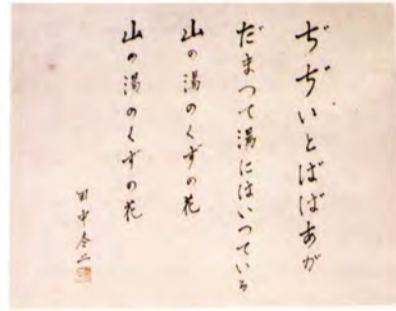 ぢぢいとばばあが
だまつて湯にはいつている
山の湯のくずの花
山の湯のくずの花
田中冬二